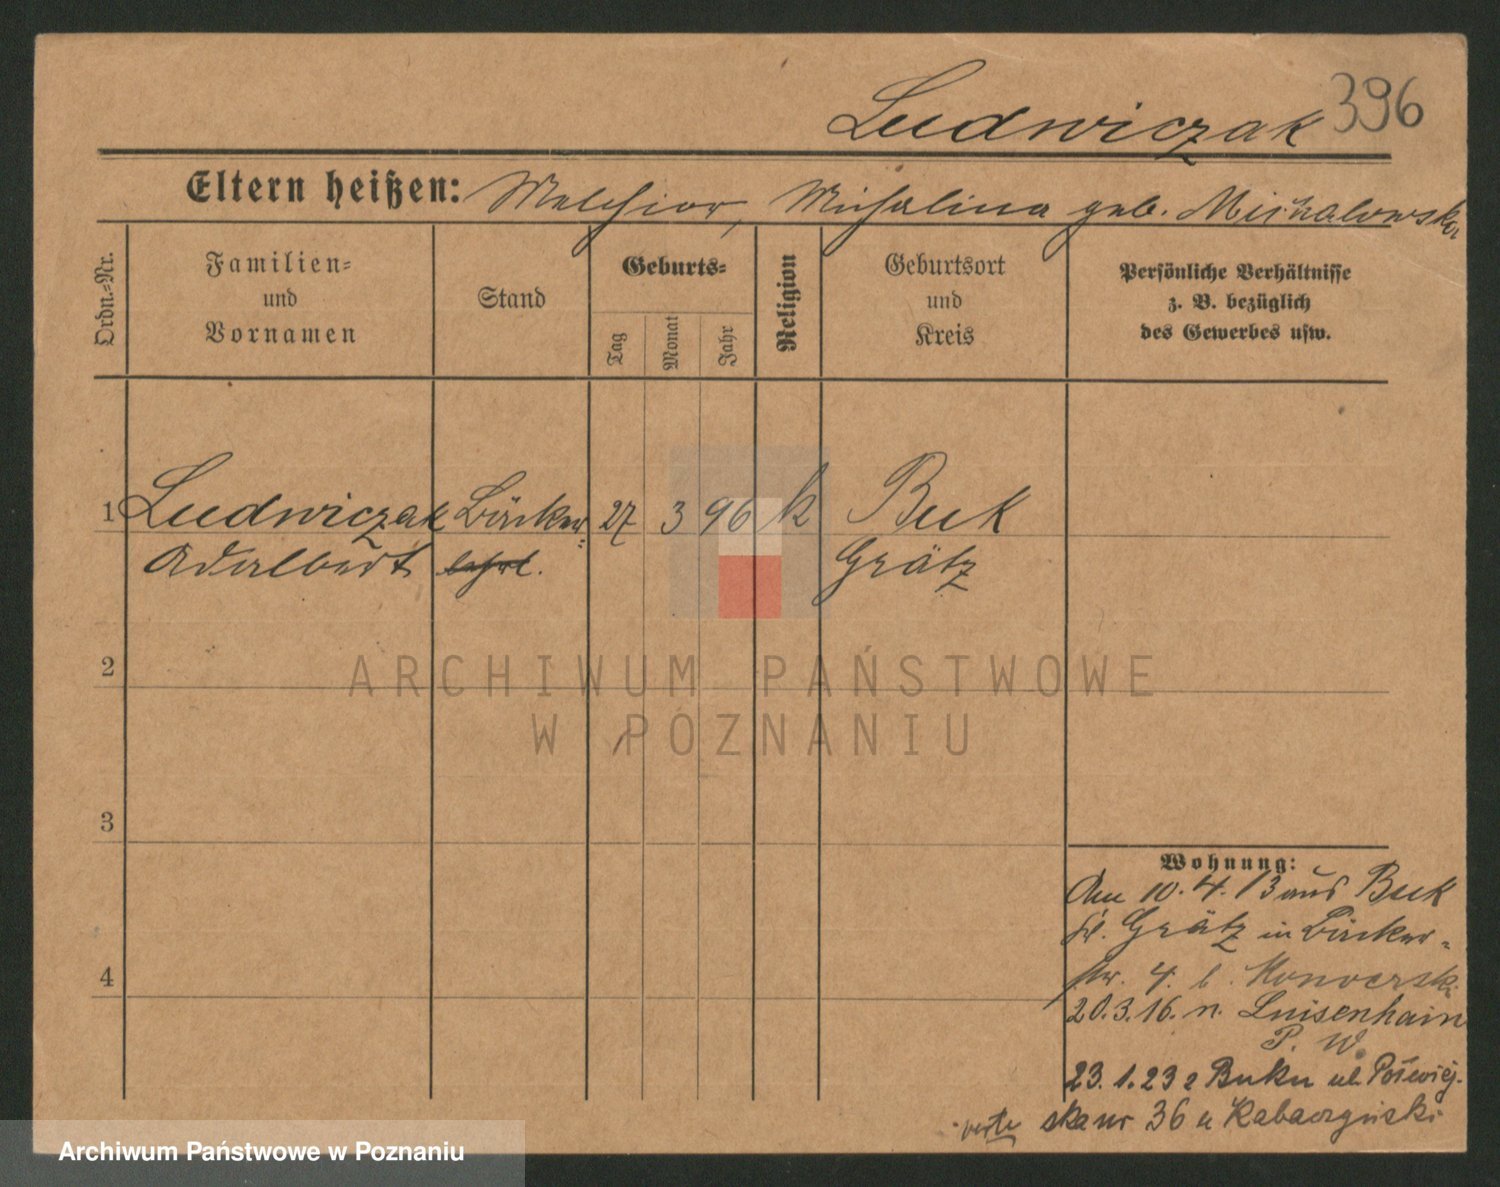 Ludwiczak 396
Eltern heißen: Melchior, Michalina geb. Michalowska
Ordn.-Nr.
Familien-
und
Vornamen
Stand
Geburts-
Tag
Monat
Jahr
Religion
Geburtsort
und
Kreis
Persönliche Verhältnisse
z. B. bezüglich
des Gewerbes usw.
1 Ludwiczak Bäcker- 27 3 96 k Buk
Adalbert lehrl. Grätz
2
ARCHIWUM PAŃSTWOWE
W POZNANIU
3
Wohnung:
Am 10.4.13 aus Buk
Grätz in Bäcker-
str. 4. b.
4
20.3.16. n. Luisenhain
P. W.
23.1.23 z Buku ul.
verte ska nr 36 u
Archiwum Państwowe w Poznaniu